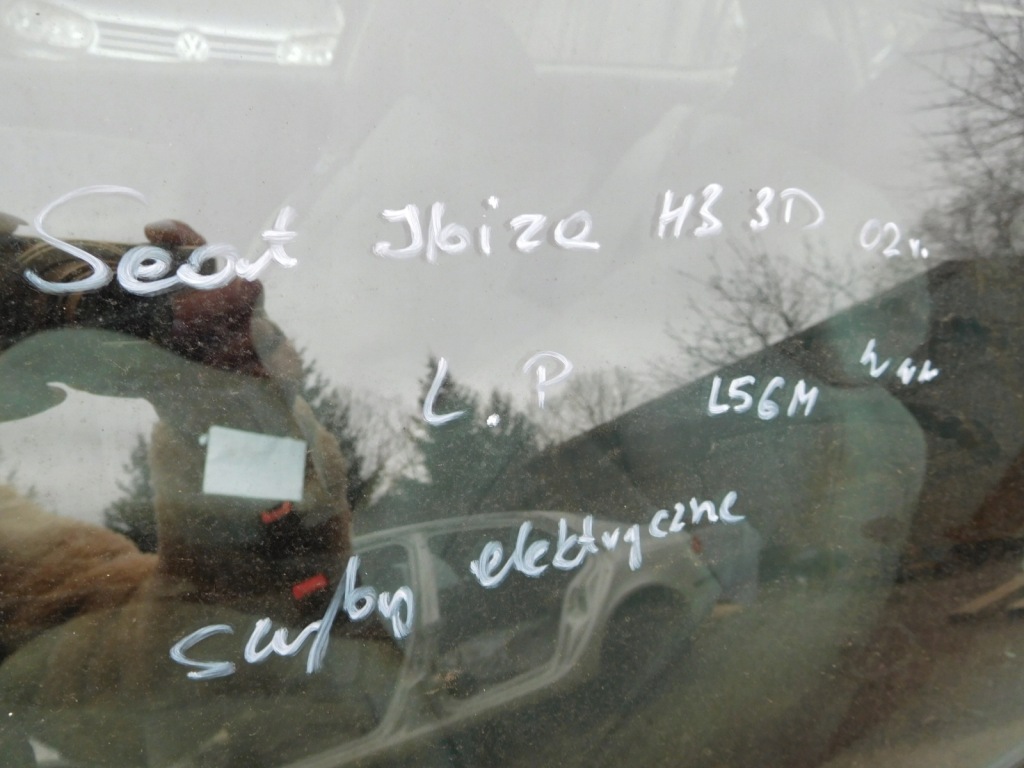 Seat Ibiza H3 3D 02r.
L.P L56M
szyby elektryczne